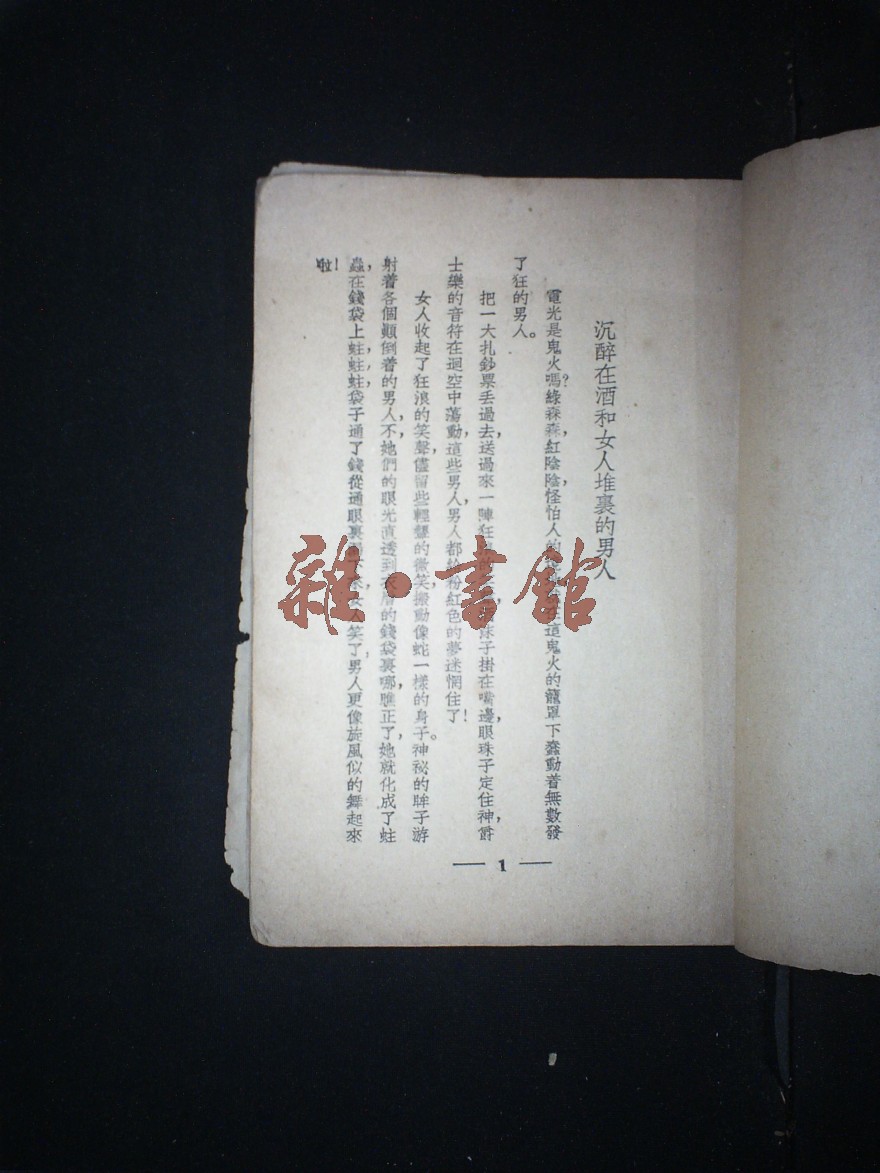 沉醉在酒和女人堆裏的男人
電光是鬼火嗎?綠森森,紅陰陰,怪怕人的在這鬼火的籠罩下蠢動着無數發
了狂的男人。
把一大扎鈔票丢過去,送過來一陣狂珠子掛在嘴邊,眼珠子定住神,爵
士樂的音符在迴空中蕩動,這些男人,男人都給粉紅色的夢迷惘住了!
女人收起了狂浪的笑聲,儘留些輕的微笑,搬動像蛇一樣的身子。神祕的眸子游
射着各個顚倒着的男人,不,她們的眼光直透到層的錢袋裏,哪,雅正了,她就化成了蛀
蟲,在錢袋上蛀,蛀,蛀,袋子通了,錢從通眼裏女人笑了,男人更像旋風似的舞起來
啦!
1
雜·書館